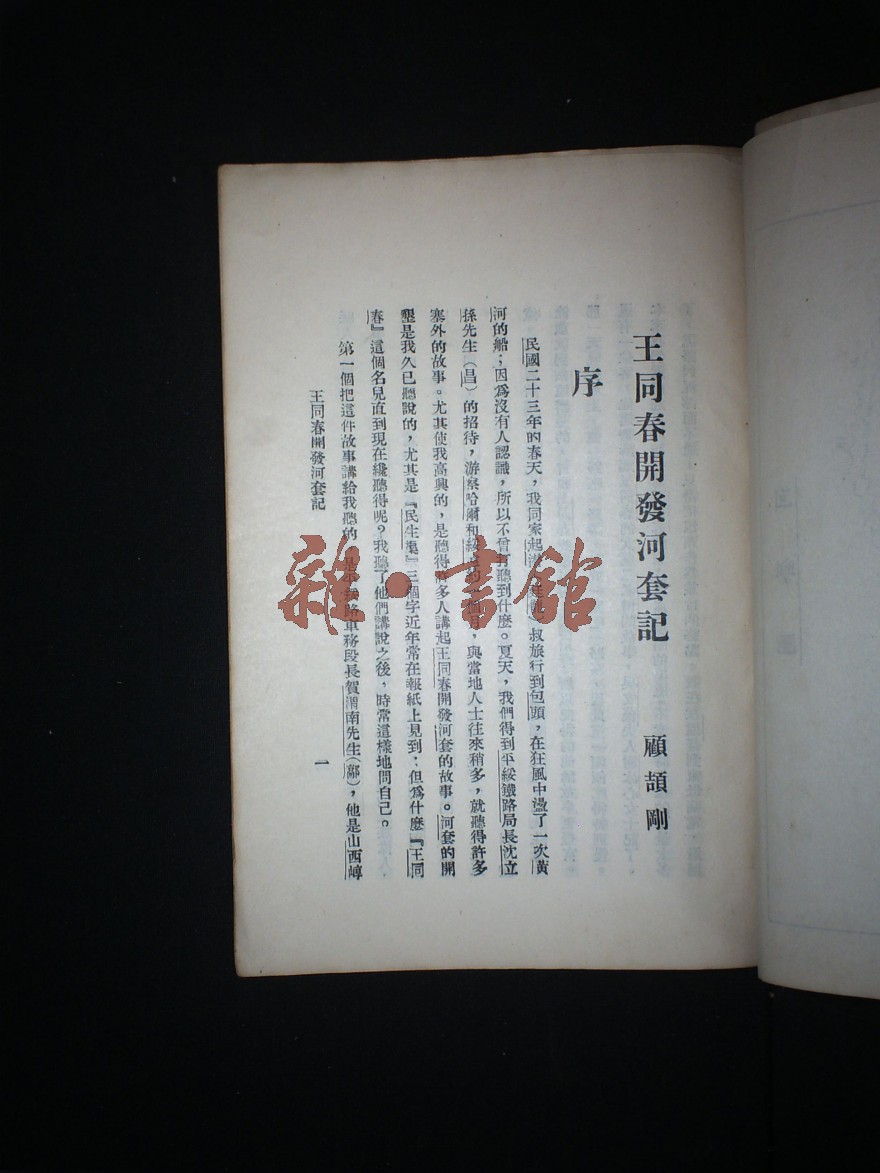 王同春開發河套記
顧頡剛
序
民國二十三年的春天，我同家起潛叔旅行到包頭，在狂風中盪了一次黃
河的船；因爲沒有人認識，所以不曾打聽到什麽。夏天，我們得到平綏鐵路局長沈立
孫先生（昌）的招待，游察哈爾和綏遠約一個月，與當地人士往來稍多，就聽得許多
塞外的故事。尤其使我高興的，是聽得許多人講起王同春開發河套的故事。河套的開
墾是我久已聽說的，尤其是『民生渠』三個字近年常在報紙上見到；但爲什麽『王同
春』這個名兒直到現在纔聽得呢？我聽了他們講說之後，時常這樣地問自己。
第一個把這件故事講給我聽的，是平綏路車務段長賀渭南先生（鄰），他是山西崞
王同春開發河套記
一
雜·書館